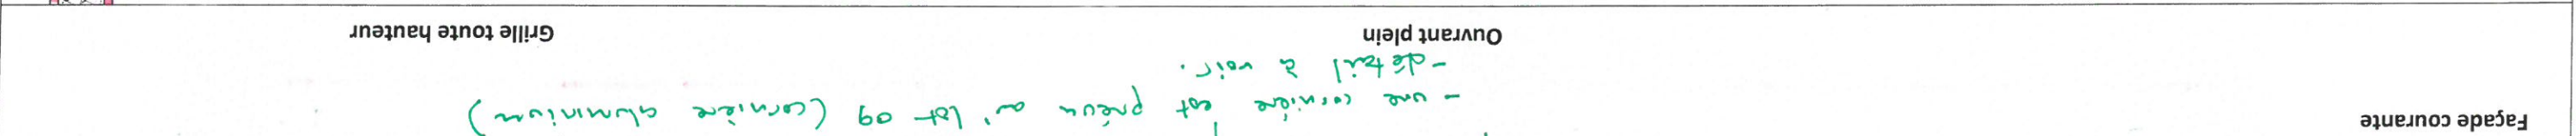 Façade courante
- une cornière est prévu au lot 09 (cornière aluminium)
- détail à voir.
Ouvrant plein
Grille toute hauteur